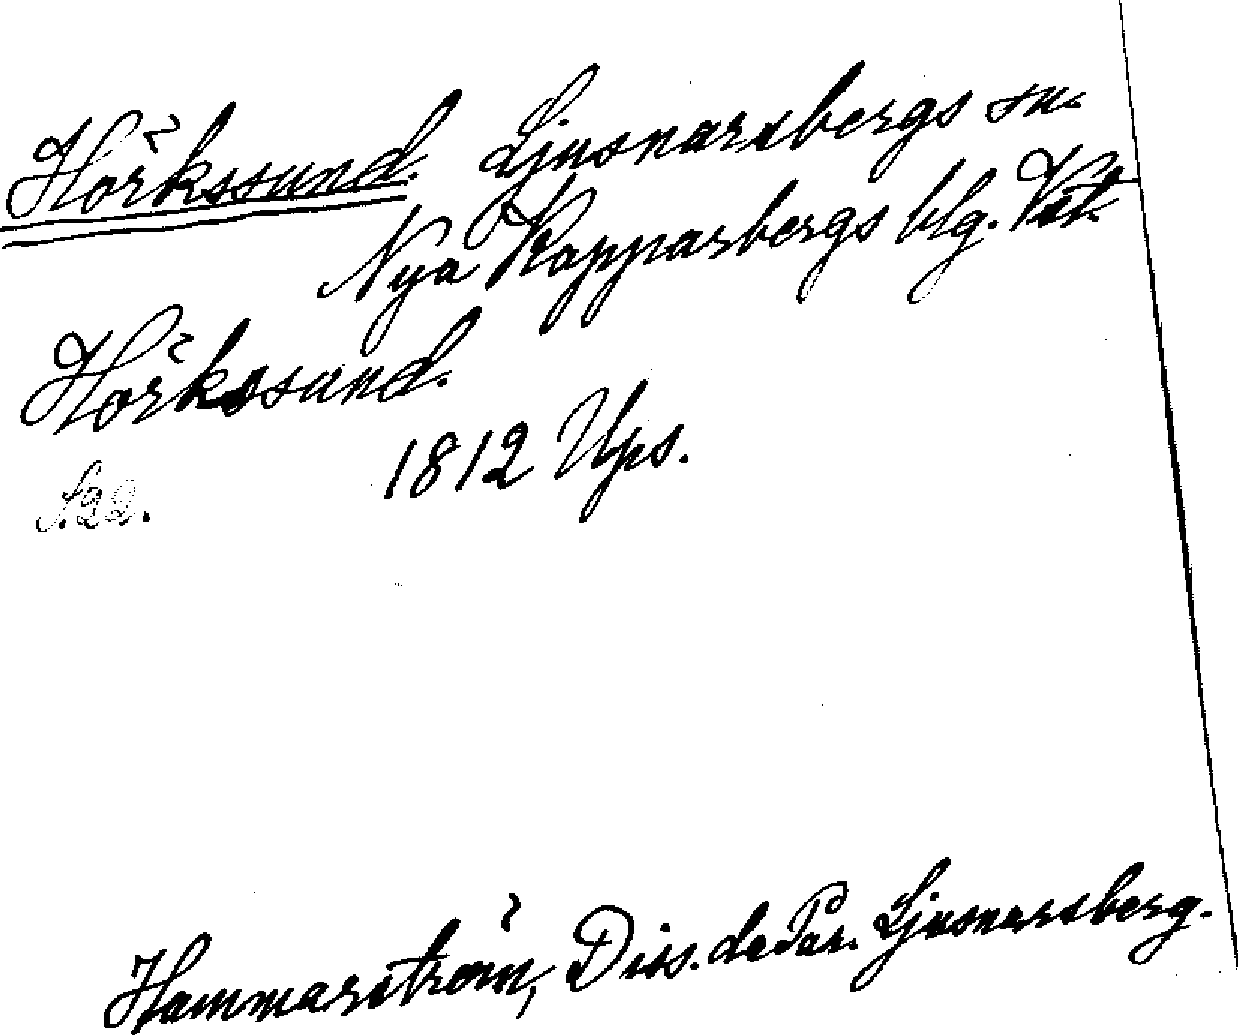 Hörkssund. Ljusnarsbergs sn.
Nya Kopparbergs blg. Vstm.
Hörkssund.
1812 Ups.
S. 22.
Hammarström, Diss. de Par. Ljusnarsberg.